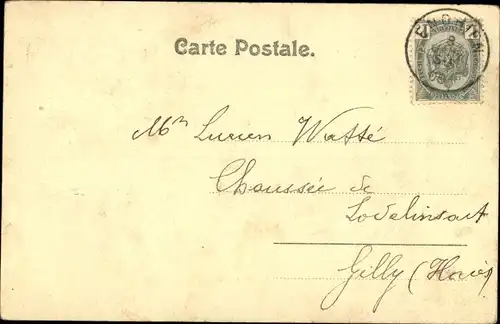 ENGHIEN
Carte Postale.
Mr Lucien Watté
Chaussée de
Lodelinsart
Gilly (